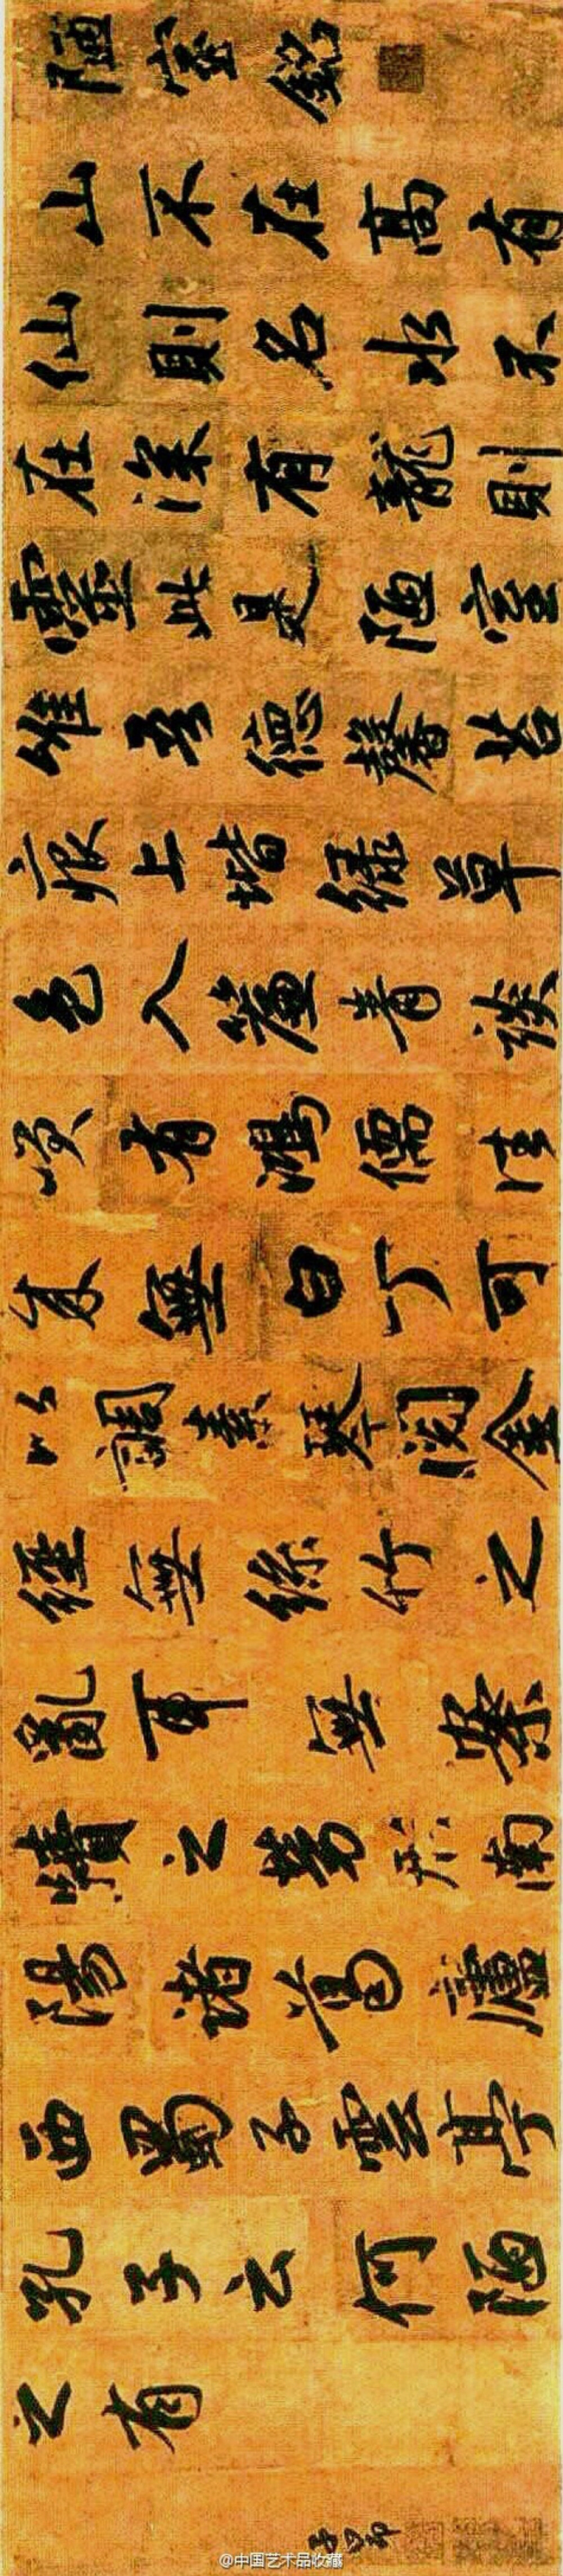 陋室銘
山不在高有
仙則名水不
在深有龍則
靈斯是陋室
惟吾德馨苔
痕上堦綠草
色入簾青談
笑有鴻儒往
來無白丁可
以調素琴閱金
經無絲竹之
亂耳無案
牘之勞形南
陽諸葛廬
西蜀子雲亭
孔子云何陋
之有
子昂
@中国艺术品收藏